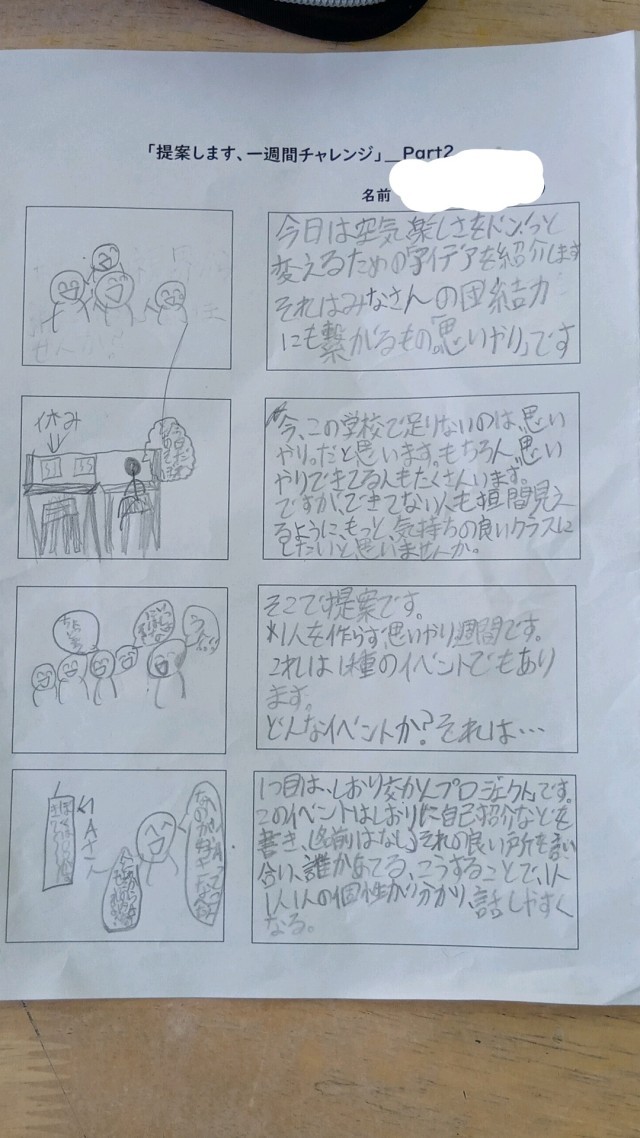 「提案します、一週間チャレンジ」_Part2
名前
今日は空気楽しさをドンっと
変えるための字イデアを紹介します
それはみなさんの団結力
にも繋がるもの「思いやり」です
休み
今、この学校で足りないのは、思い
やり。だと思います。もちろん、思い
やりできてる人もたくさんいます。
ですが、できてない人も垣間見え
るように、もっと、気持ちの良いクラスに
したいと、思いませんか。
そこで提案です。
1人を作らず、思いやり週間です。
これは1種のイベントでもあり
ます。
どんなイベントか?それは…
1つ目は、しおり交かんプロジェクト」です。
このイベントはしおりに自己紹介などを
書き、(名前はなし)それの良い所を言い
合い、誰かあてる、こうすることで、1人
1人1人の個性が分かり、話しやすく
なる。
Aさん